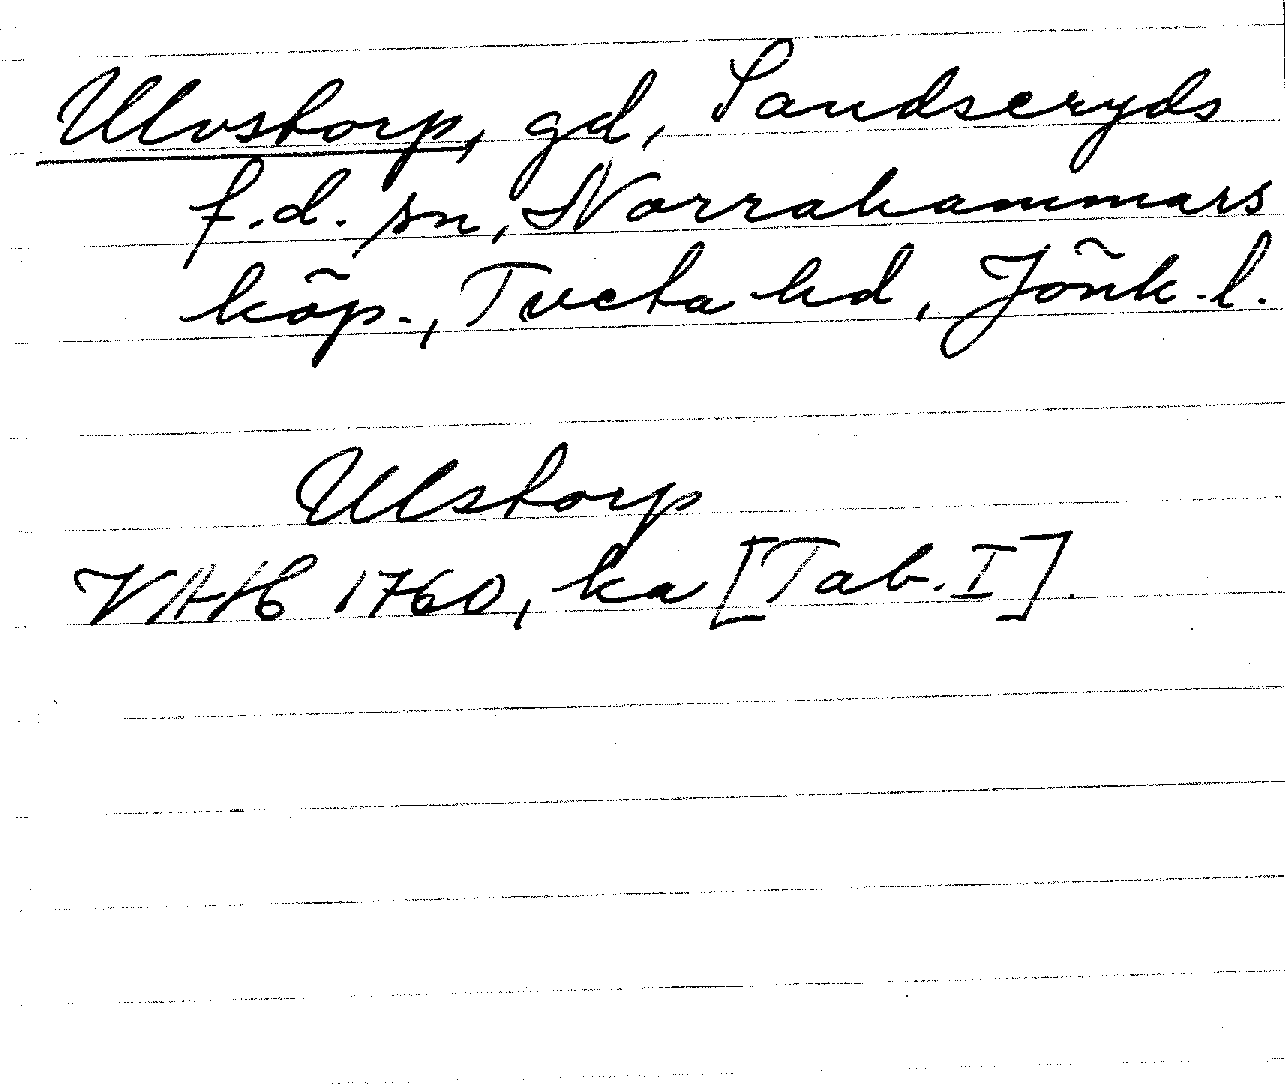 Ulvstorp, gd, Sandseryds
f.d. sn, Norrahammars
köp., Tveta hd, Jönk.l.
Ulstorp
VAH 1760, ka [Tab. I].